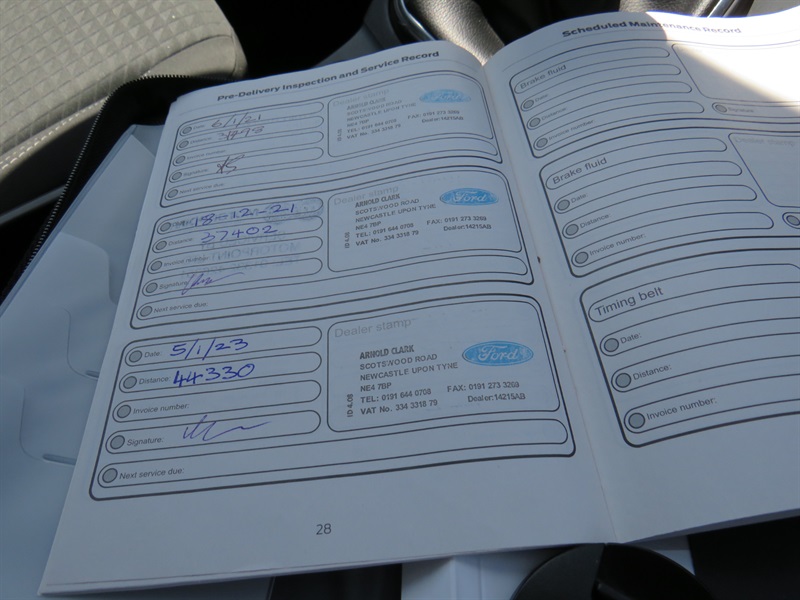 Pre-Delivery Inspection and Service Record
Date: 6/1/21
Signature:
Next service due:
Dealer stamp
ARNOLD CLARK
SCOTSWOOD ROAD
NEWCASTLE UPON TYNE
NE4 7BP
TEL: 0191 644 0708 FAX: 0191 273 3269
VAT No. 334 3318 79 Dealer:14215AB
ID 4.08
Ford
18-12-21
Distance: 37402
Invoice number:
Signature:
Next service due:
Dealer stamp
ARNOLD CLARK
SCOTSWOOD ROAD
NEWCASTLE UPON TYNE
NE4 7BP
TEL: 0191 644 0708 FAX: 0191 273 3269
VAT No. 334 3318 79 Dealer:14215AB
ID 4.08
Ford
Date: 5/1/23
Distance: 44330
Invoice number:
Signature:
Next service due:
Dealer stamp
ARNOLD CLARK
SCOTSWOOD ROAD
NEWCASTLE UPON TYNE
NE4 7BP
TEL: 0191 644 0708 FAX: 0191 273 3269
VAT No. 334 3318 79 Dealer:14215AB
ID 4.08
Ford
28
Scheduled Maintenance Record
Brake fluid
Date:
Distance:
Invoice number:
Signature:
Brake fluid
Date:
Distance:
Invoice number:
Dealer stamp
Timing belt
Date:
Distance:
Invoice number: